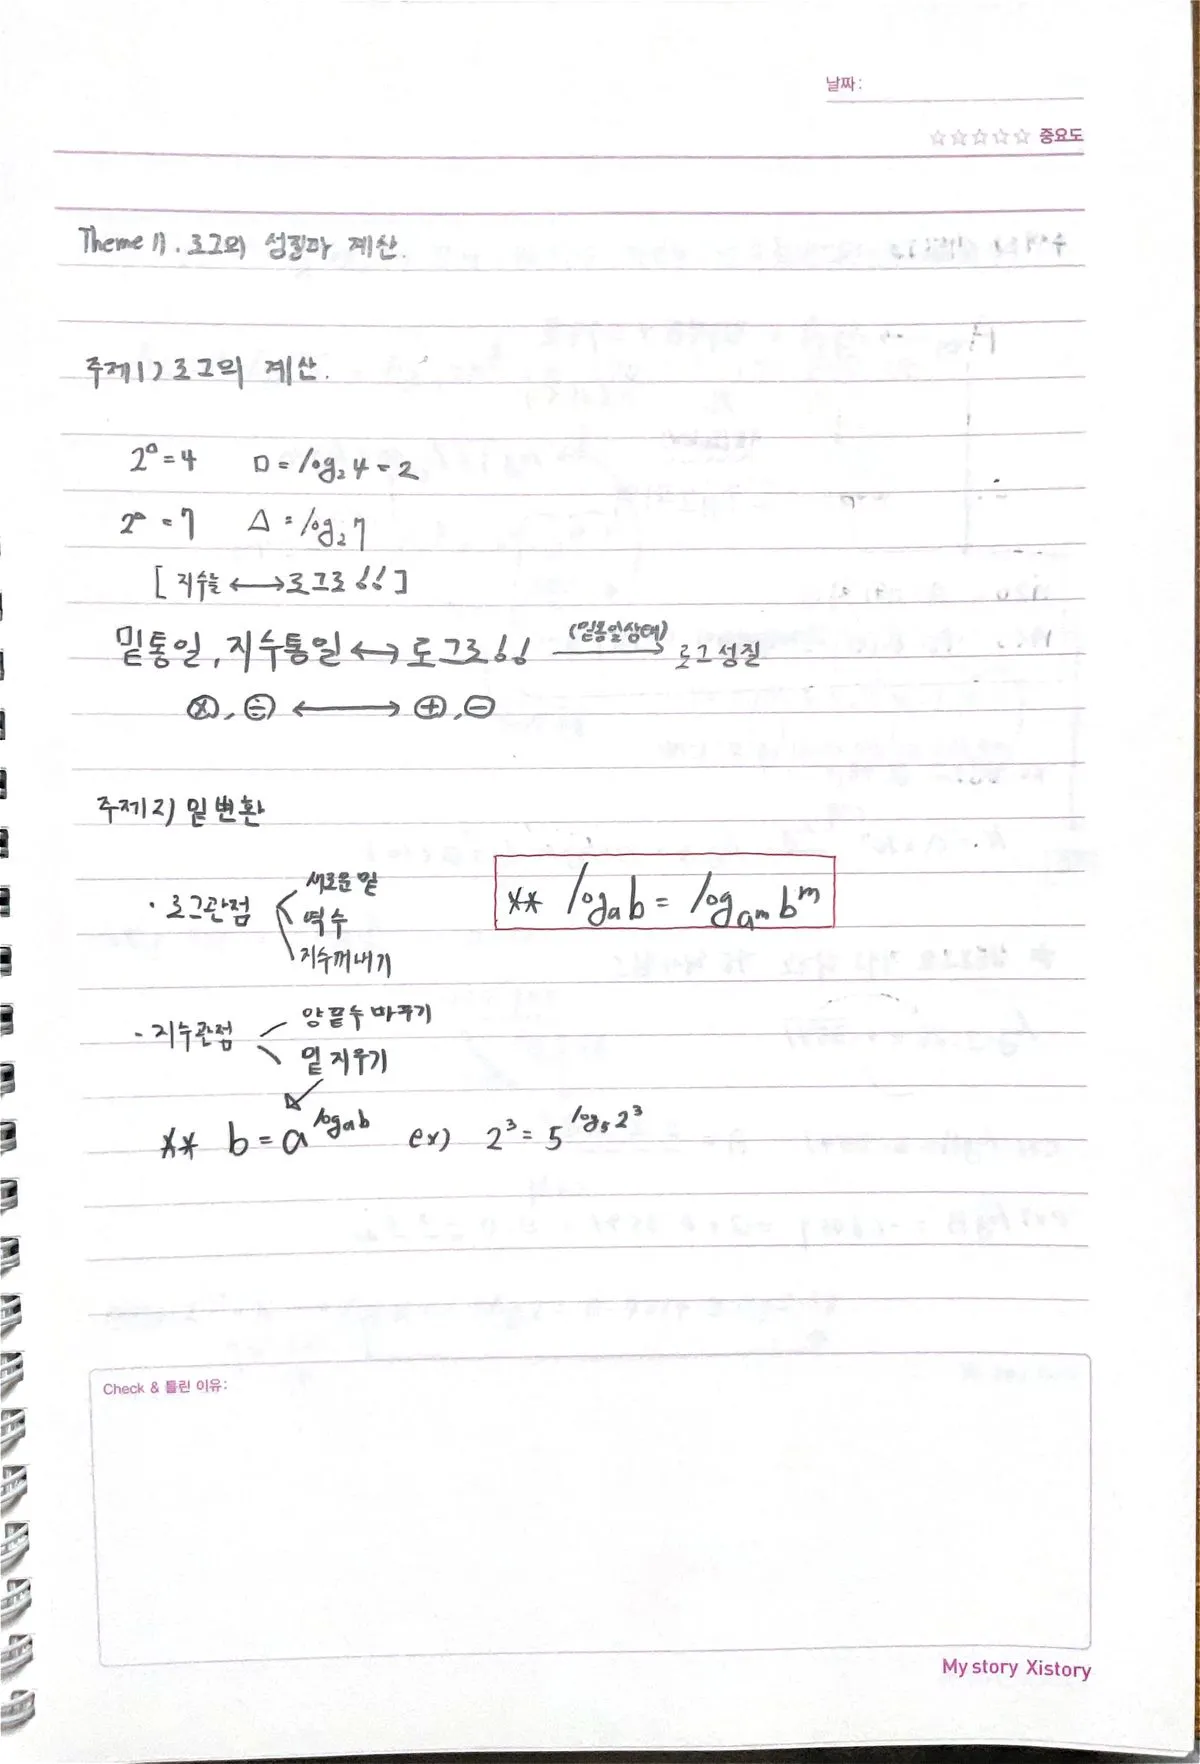 날짜:
☆☆☆☆☆ 중요도
Theme 17. 로그의 성질과 계산.
주제1) 로그의 계산.
2^□=4 □=log₂4=2
2^△=7 △=log₂7
[지수는 ⟷ 로그로!!]
밑통일, 지수통일 ⟷ 로그로!! (밑통일상태)→ 로그성질
⊗, ⊕ ⟷ ⊕, ⊖
주제2) 밑변환
· 로그관점
새로운 밑
역수
지수꺼내기
** log_a b = log_{a^m} b^m
- 지수관점
양끝수 바꾸기
밑 지우기
** b = a^{log_a b} ex) 2³ = 5^{log₅2³}
Check & 틀린 이유:
My story Xistory